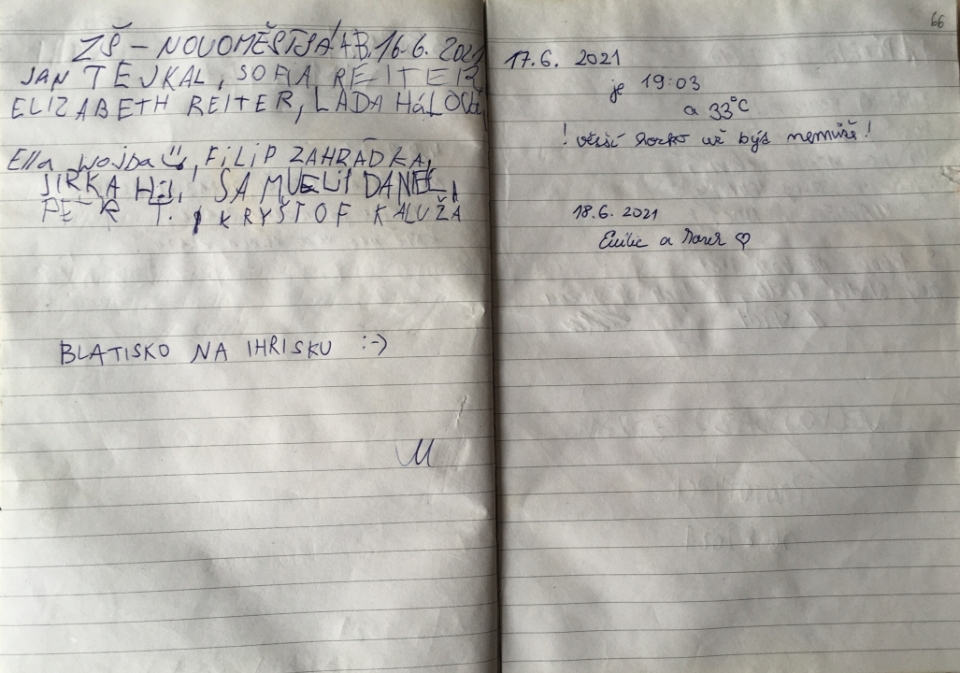 ZŠ - NOVOMĚSTSJÁ 4.B. 16.6. 2021
JAN TEJKAL, SOFIA REITER
ELIZABETH REITER, LADA
Ella Wojba, FILIP ZAHRÁDKA,
JIRKA H., SAMUELIS DANĚL,
PETR T., KRYŠTOF KALUŽA
BLATISKO NA IHRISKU :-)
M
66
17.6. 2021
je 19:03
a 33°C
! větší horko už být nemůže !
18.6. 2021
Emilie a Marek ♡